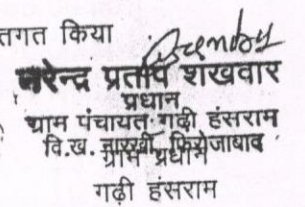 तगत किया
नरेन्द्र प्रताप शखवार
प्रधान
ग्राम पंचायत गढ़ी हंसराम
वि.ख. नारखी, फिरोजाबाद
ग्राम प्रधान
गढ़ी हंसराम